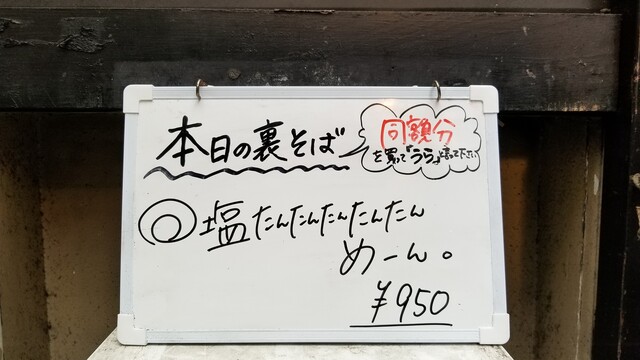 本日の裏そば
同額分
を買って「うら」と言って下さい
◎塩たんたんたんたんたん
めーん。
¥950